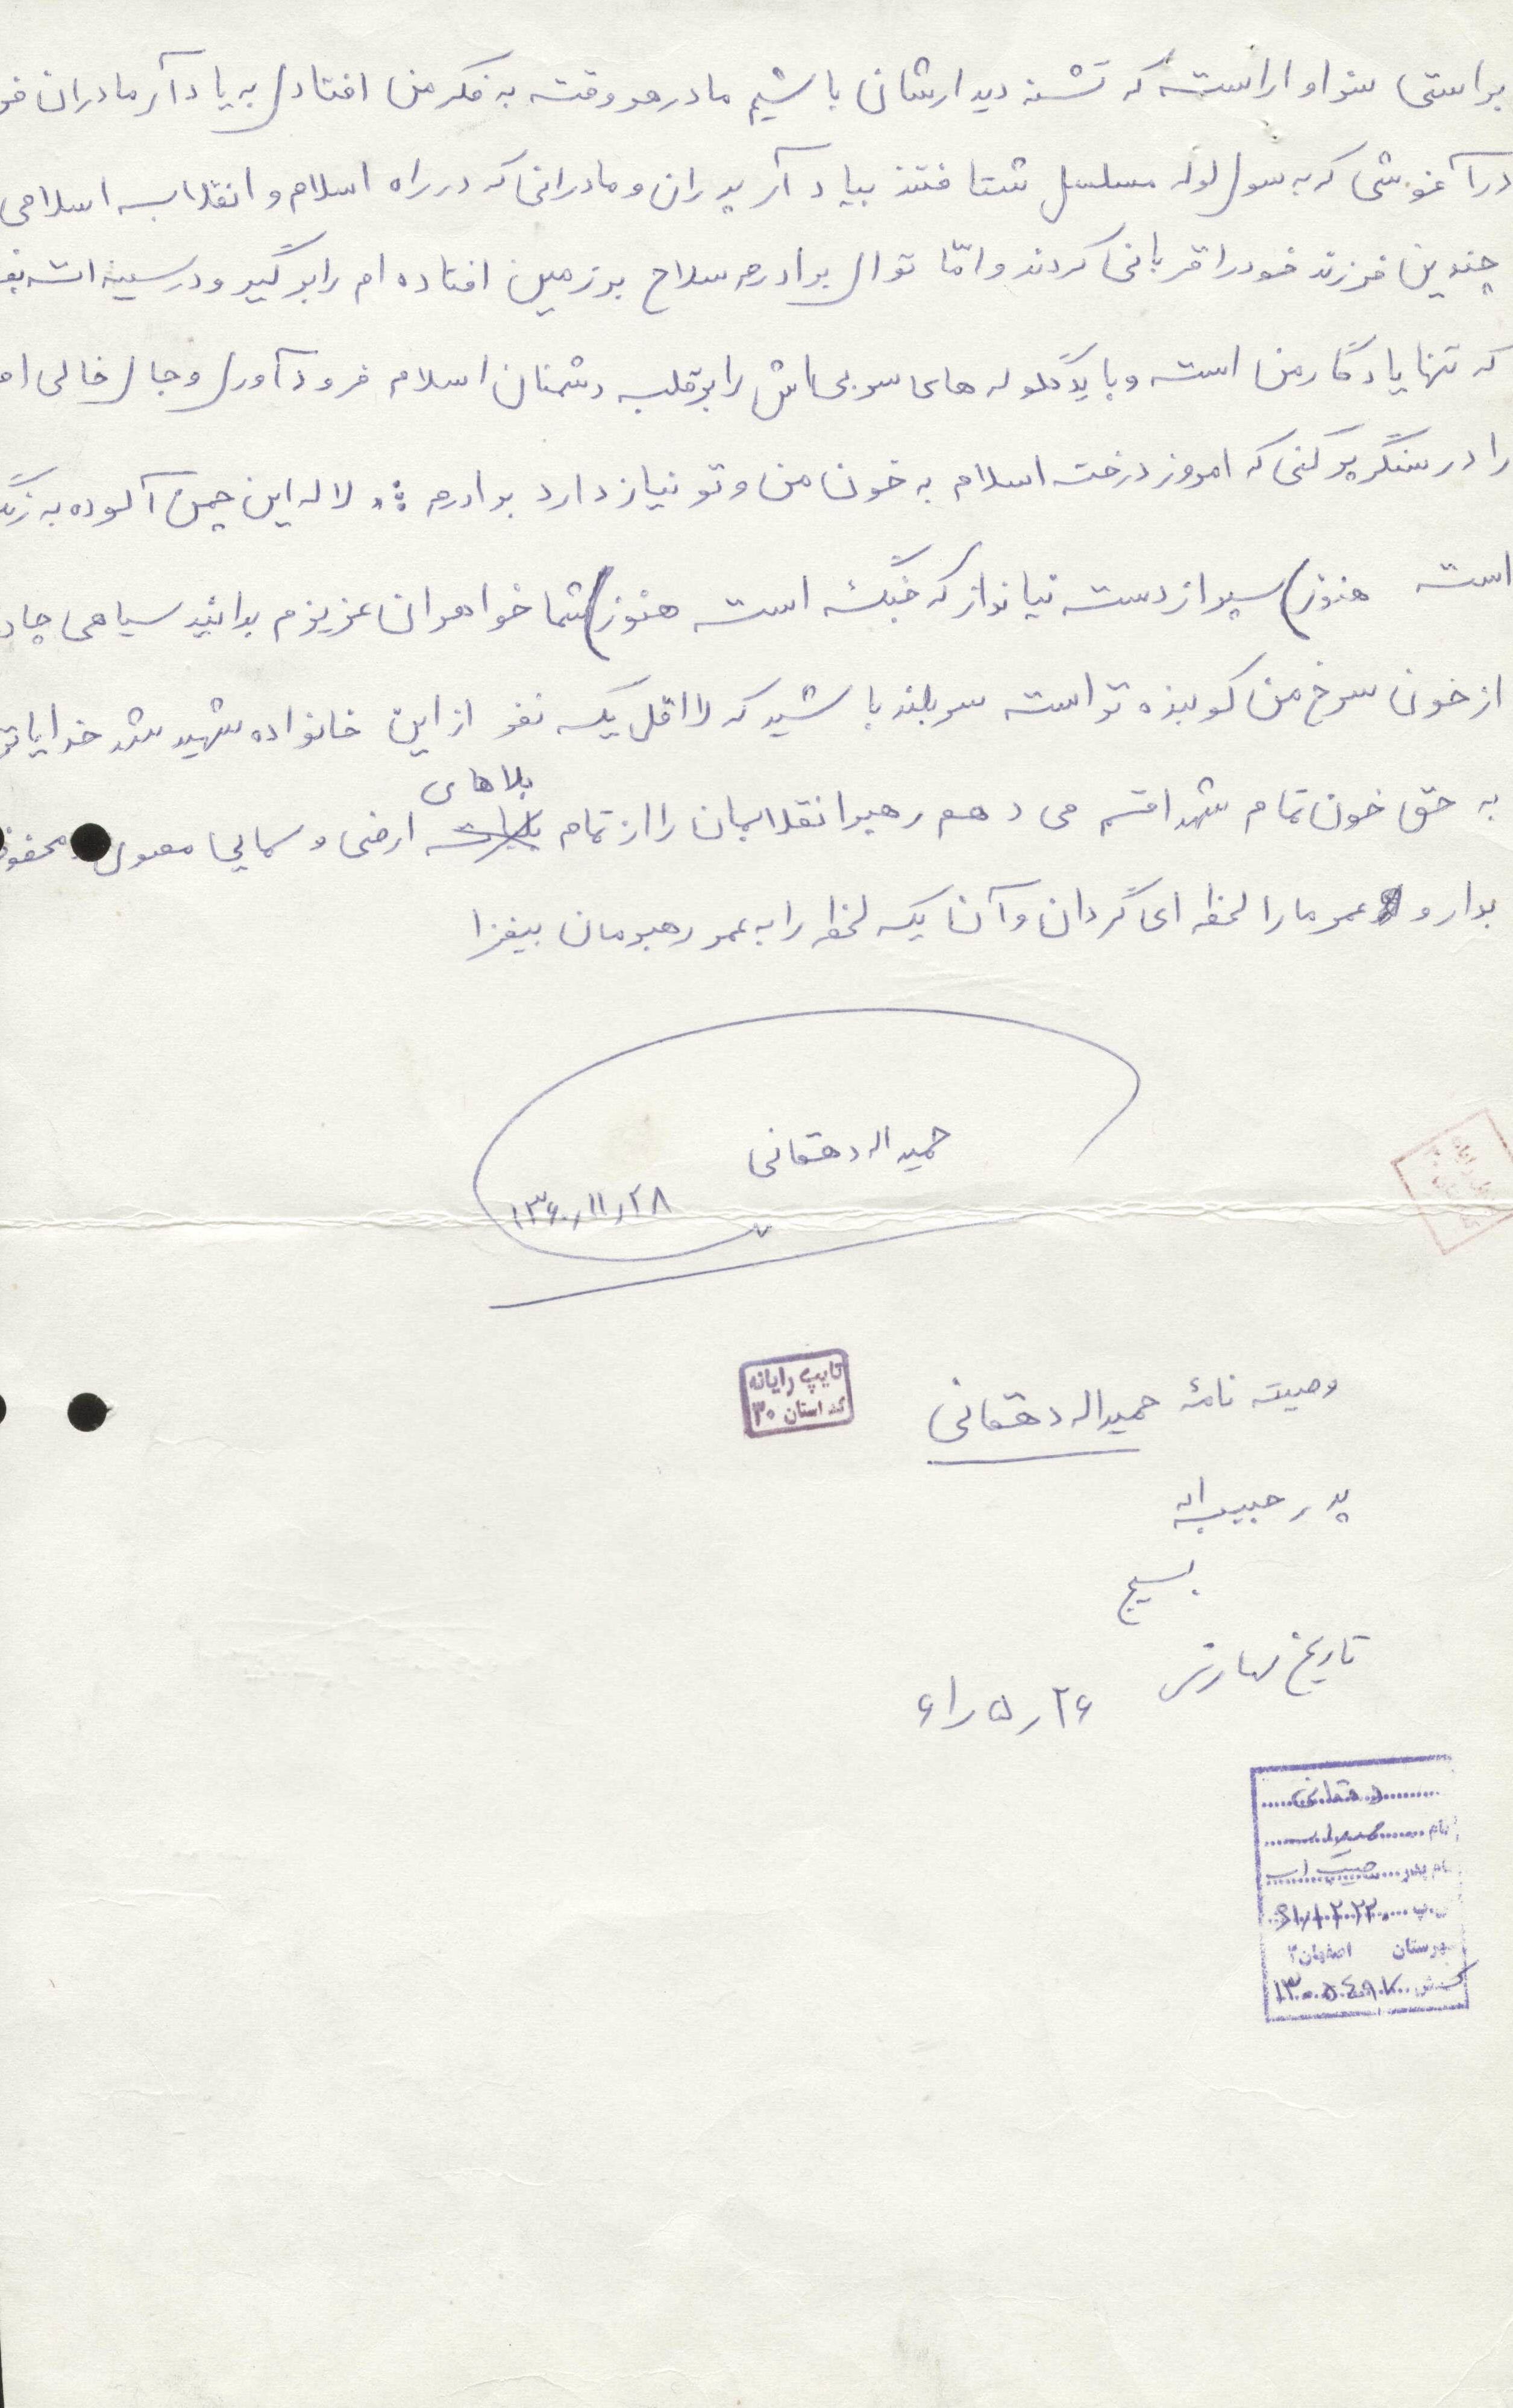 براستی سزاوار است که تشنه دیدارشان باشیم مادر هر وقت به فکر من افتادی به یاد آر مادران
در آغوشی که به سوی لوله مسلسل شتافتند بیاد آر پدران و مادرانی که در راه اسلام و انقلاب اسلامی
چندین فرزند خود را قربانی کردند و امّا تو ای برادرم سلاح بر زمین افتاده ام را برگیر و در سینه ات
که تنها یادگار من است و باید گلوله های سربی اش را بر قلب دشمنان اسلام فرود آوری و جای خالی
را در سنگر پر کنی که امروز درخت اسلام به خون من و تو نیاز دارد برادرم : لاله این چمن آلوده به رنگ
است هنوز) سپر از دست نیانداز که جنگ است هنوز) شما خواهران عزیزم بدانید سیاهی
از خون سرخ من کوبنده تر است سربلند باشید که لااقل یک نفر از این خانواده شهید شد خدایا
به حق خون تمام شهدا قسم می دهم رهبر انقلابمان را از تمام بلاهای ارضی و سمایی محفوظ
بدار و عمر ما را لحظه ای گردان و آن یک لحظه را به عمر رهبرمان بیفزا
حمیداله دهقانی
۱۳۶۰٫۱۱٫۲۸
وصیت نامۀ حمیداله دهقانی
تایپ رایانه
کد استان ۳۰
پدر حبیب اله
بسیج
تاریخ
۲۶ ر ۵ ر ۶۱
دهقانی
نام حمیداله
نام پدر حبیب اله
اصفهان ۲